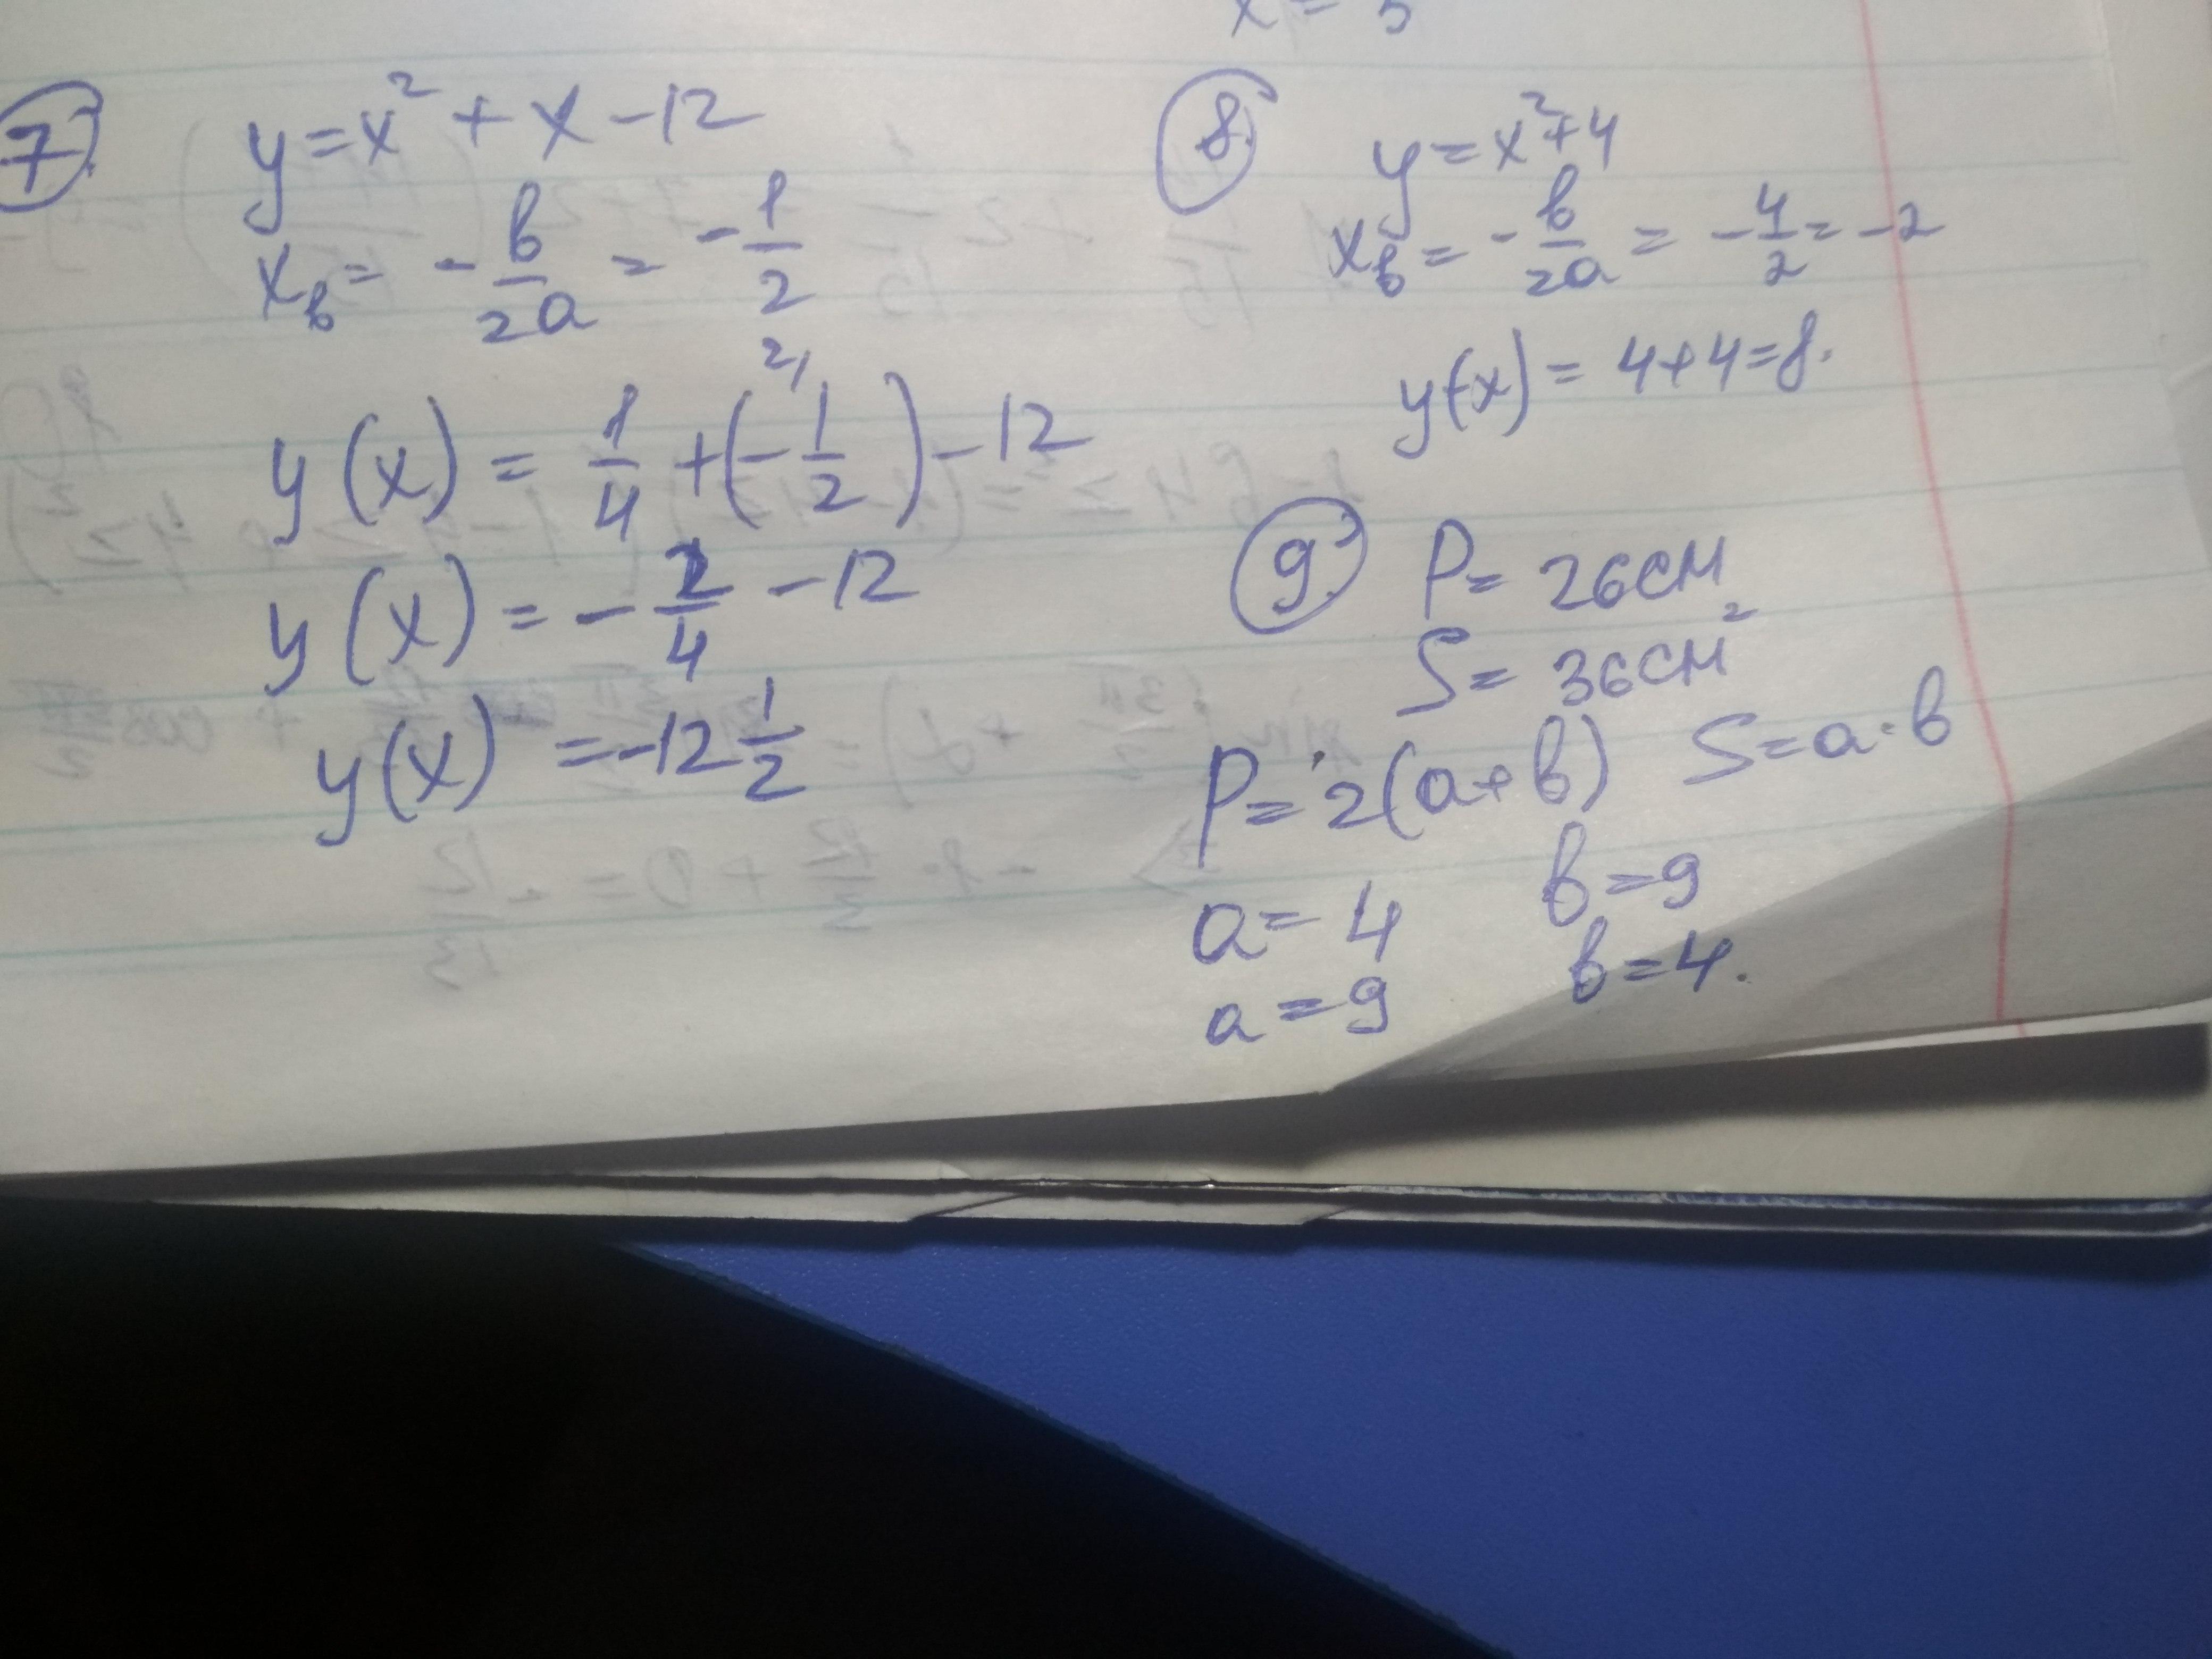 x = 5
7.
y = x² + x - 12
xв = - в/2a = - 1/2
y(x) = 1/4 + (- 1/2) - 12
y(x) = - 2/4 - 12
y(x) = -12 1/2
8.
y = x² + 4
xв = - в/2a = - 4/2 = -2
y(x) = 4+4=8.
9.
P = 26 см
S = 36 см²
P = 2(a+в) S = a·в
a = 4 в = 9
a = 9 в = 4.